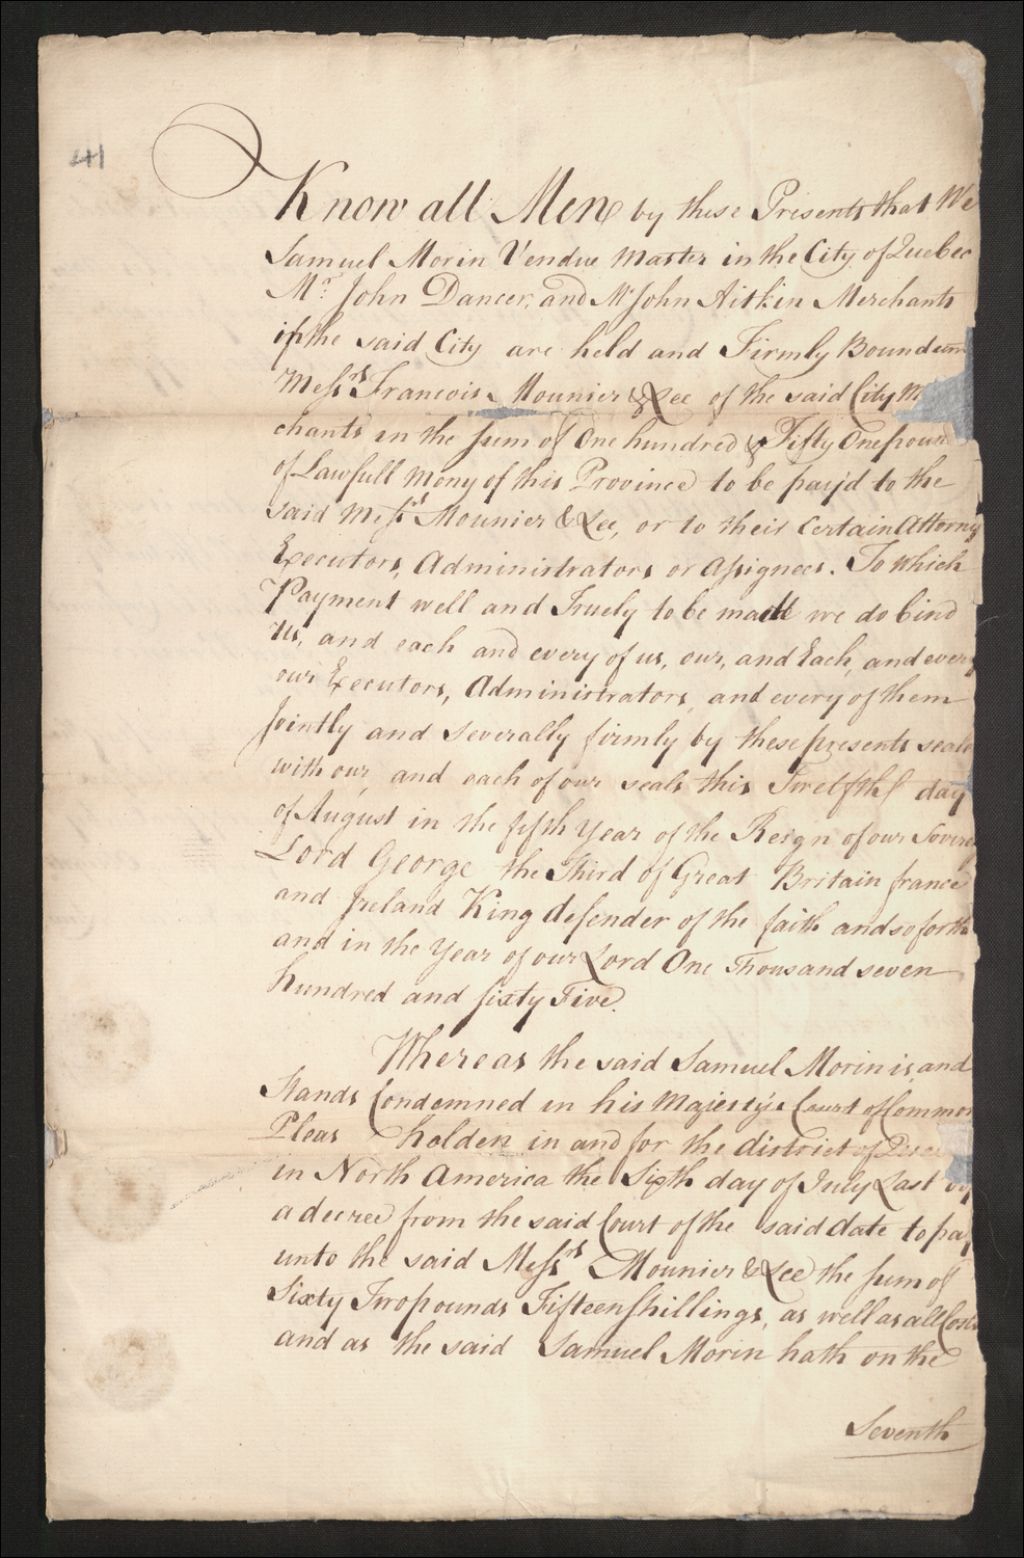 41
Know all Men by these Presents that We
Samuel Morin Vendue Master in the City of Quebec
Mr John Dancer, and Mr John Aitkin Merchants
of the said City are held and Firmly Bound
Messrs Francois Mounier & Lee of the said City M
chants in the sum of One hundred & Fifty One poun
of Lawfull mony of this Province to be pay'd to the
said Messrs Mounier & Lee, or to their Certain Attorny
Executors, Administrators or Assignees. To which
Payment well and Truely to be made we do bind
us, and each and every of us, our, and Each, and every
our Executors, Administrators, and every of them
Jointly and severally firmly by these presents seal
with our, and each of our seals this Twelfth day
of August in the fifth year of the Reign of our Sovere
Lord George the Third of Great Britain france
and Ireland King defender of the faith and so forth
and in the year of our Lord One Thousand seven
hundred and sixty Five.
Whereas the said Samuel Morin is, and
Stands Condemned in his Majesty's Court of Common
Pleas holden in and for the district of
in North America the Sixth day of July Last by
a decree from the said Court of the said date to pay
unto the said Messrs Mounier & Lee the sum of
Sixty Two pounds Fifteen shillings, as well as all Costs
and as the said Samuel Morin hath on the
Seventh